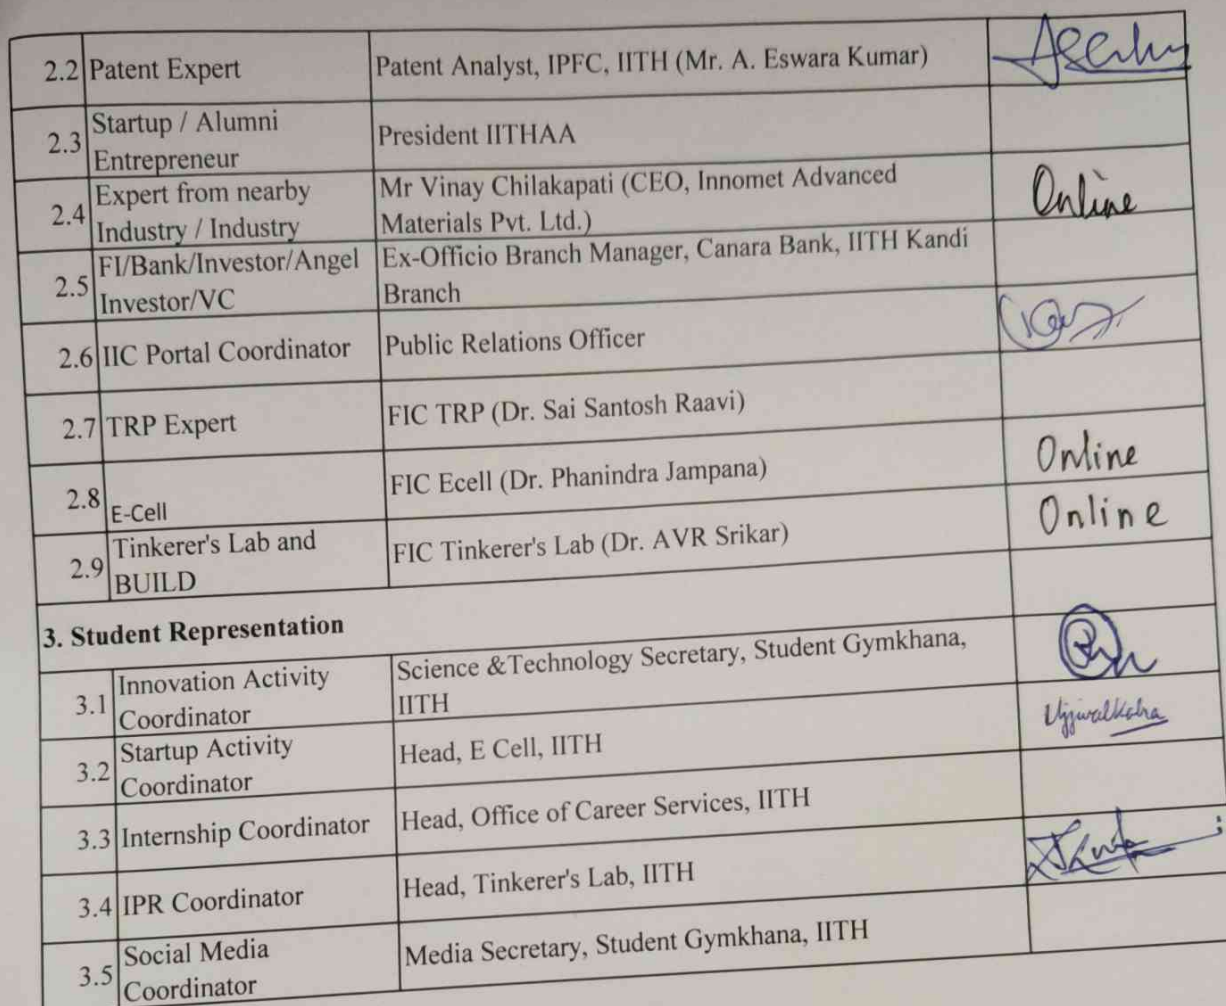 2.2 Patent Expert Patent Analyst, IPFC, IITH (Mr. A. Eswara Kumar)
2.3 Startup / Alumni
Entrepreneur
President IITHAA
2.4 Expert from nearby
Industry / Industry
Mr Vinay Chilakapati (CEO, Innomet Advanced
Materials Pvt. Ltd.)
Online
2.5 FI/Bank/Investor/Angel
Investor/VC
Ex-Officio Branch Manager, Canara Bank, IITH Kandi
Branch
2.6 IIC Portal Coordinator Public Relations Officer
2.7 TRP Expert FIC TRP (Dr. Sai Santosh Raavi)
2.8 E-Cell FIC Ecell (Dr. Phanindra Jampana) Online
2.9 Tinkerer's Lab and
BUILD
FIC Tinkerer's Lab (Dr. AVR Srikar)
Online
3. Student Representation
3.1 Innovation Activity
Coordinator
Science &Technology Secretary, Student Gymkhana,
IITH
3.2 Startup Activity
Coordinator
Head, E Cell, IITH
Ujjwal Kalra
3.3 Internship Coordinator Head, Office of Career Services, IITH
3.4 IPR Coordinator Head, Tinkerer's Lab, IITH
3.5 Social Media
Coordinator
Media Secretary, Student Gymkhana, IITH